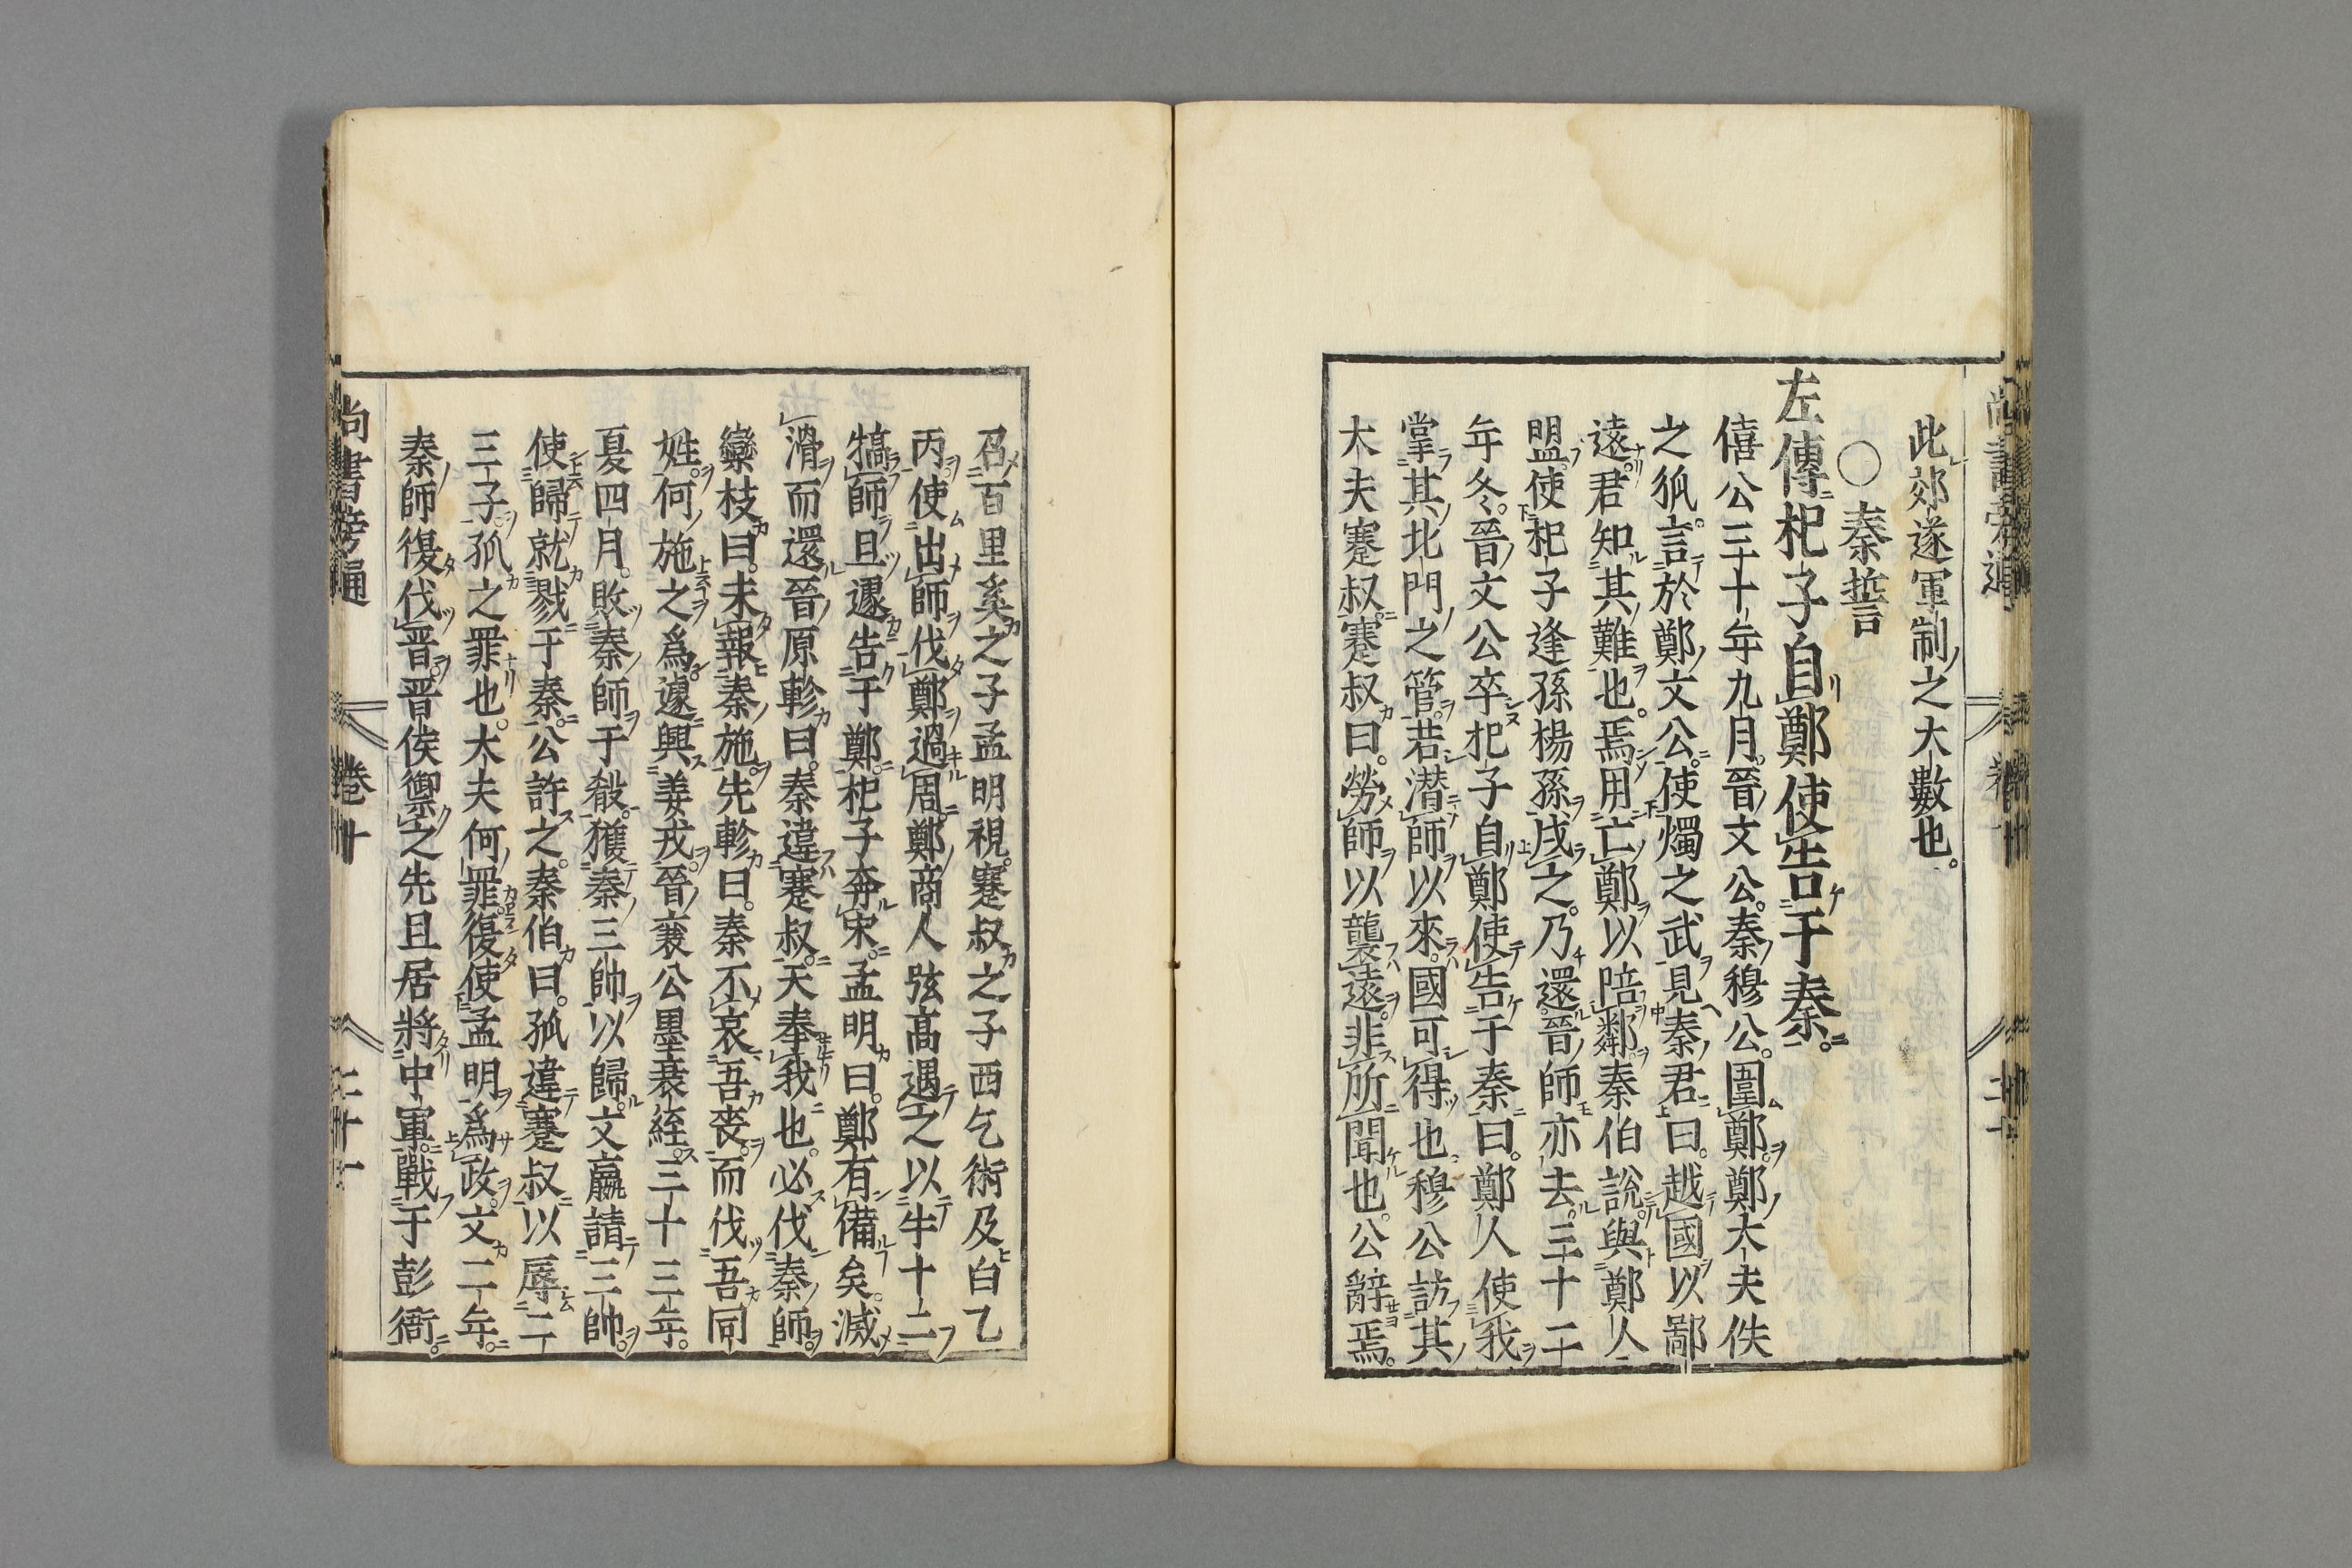 此郊遂軍制之大數也。
〇秦誓
左傳杞子自鄭使告于秦。
僖公三十年九月。晉文公。秦穆公。圍鄭。鄭大夫佚
之狐。言於鄭文公。使燭之武見秦君曰。越國以鄙
遠。君知其難也。焉用亡鄭以陪鄰。秦伯說。與鄭人
盟。使杞子逢孫楊孫戍之。乃還。晉師亦去。三十二
年冬。晉文公卒。杞子自鄭使告于秦曰。鄭人使我
掌其北門之管。若潜師以來。國可得也。穆公訪其
大夫蹇叔。蹇叔曰。勞師以襲遠。非所聞也。公辭焉。
召百里奚之子孟明視。蹇叔之子西乞術及白乙
丙。使出師伐鄭。過周。鄭商人弦高遇之。以牛十二
犒師。且遽告于鄭。杞子奔宋。孟明曰。鄭有備矣。滅
滑而還。晉原軫曰。秦違蹇叔。天奉我也。必伐秦師。
欒枝曰。未報秦施。先軫曰。秦不哀吾喪。而伐吾同
姓。何施之爲。遽興姜戎。晉襄公墨衰絰。三十三年。
夏四月。敗秦師于殽。獲秦三帥以歸。文嬴請三帥。
使歸就戮于秦。公許之。秦伯曰。孤違蹇叔以辱二
三子。孤之罪也。大夫何罪。復使孟明爲政。文二年。
秦師復伐晉。晉侯禦之。先且居將中軍。戰于彭衙。
尚書旁通 卷十 二十一